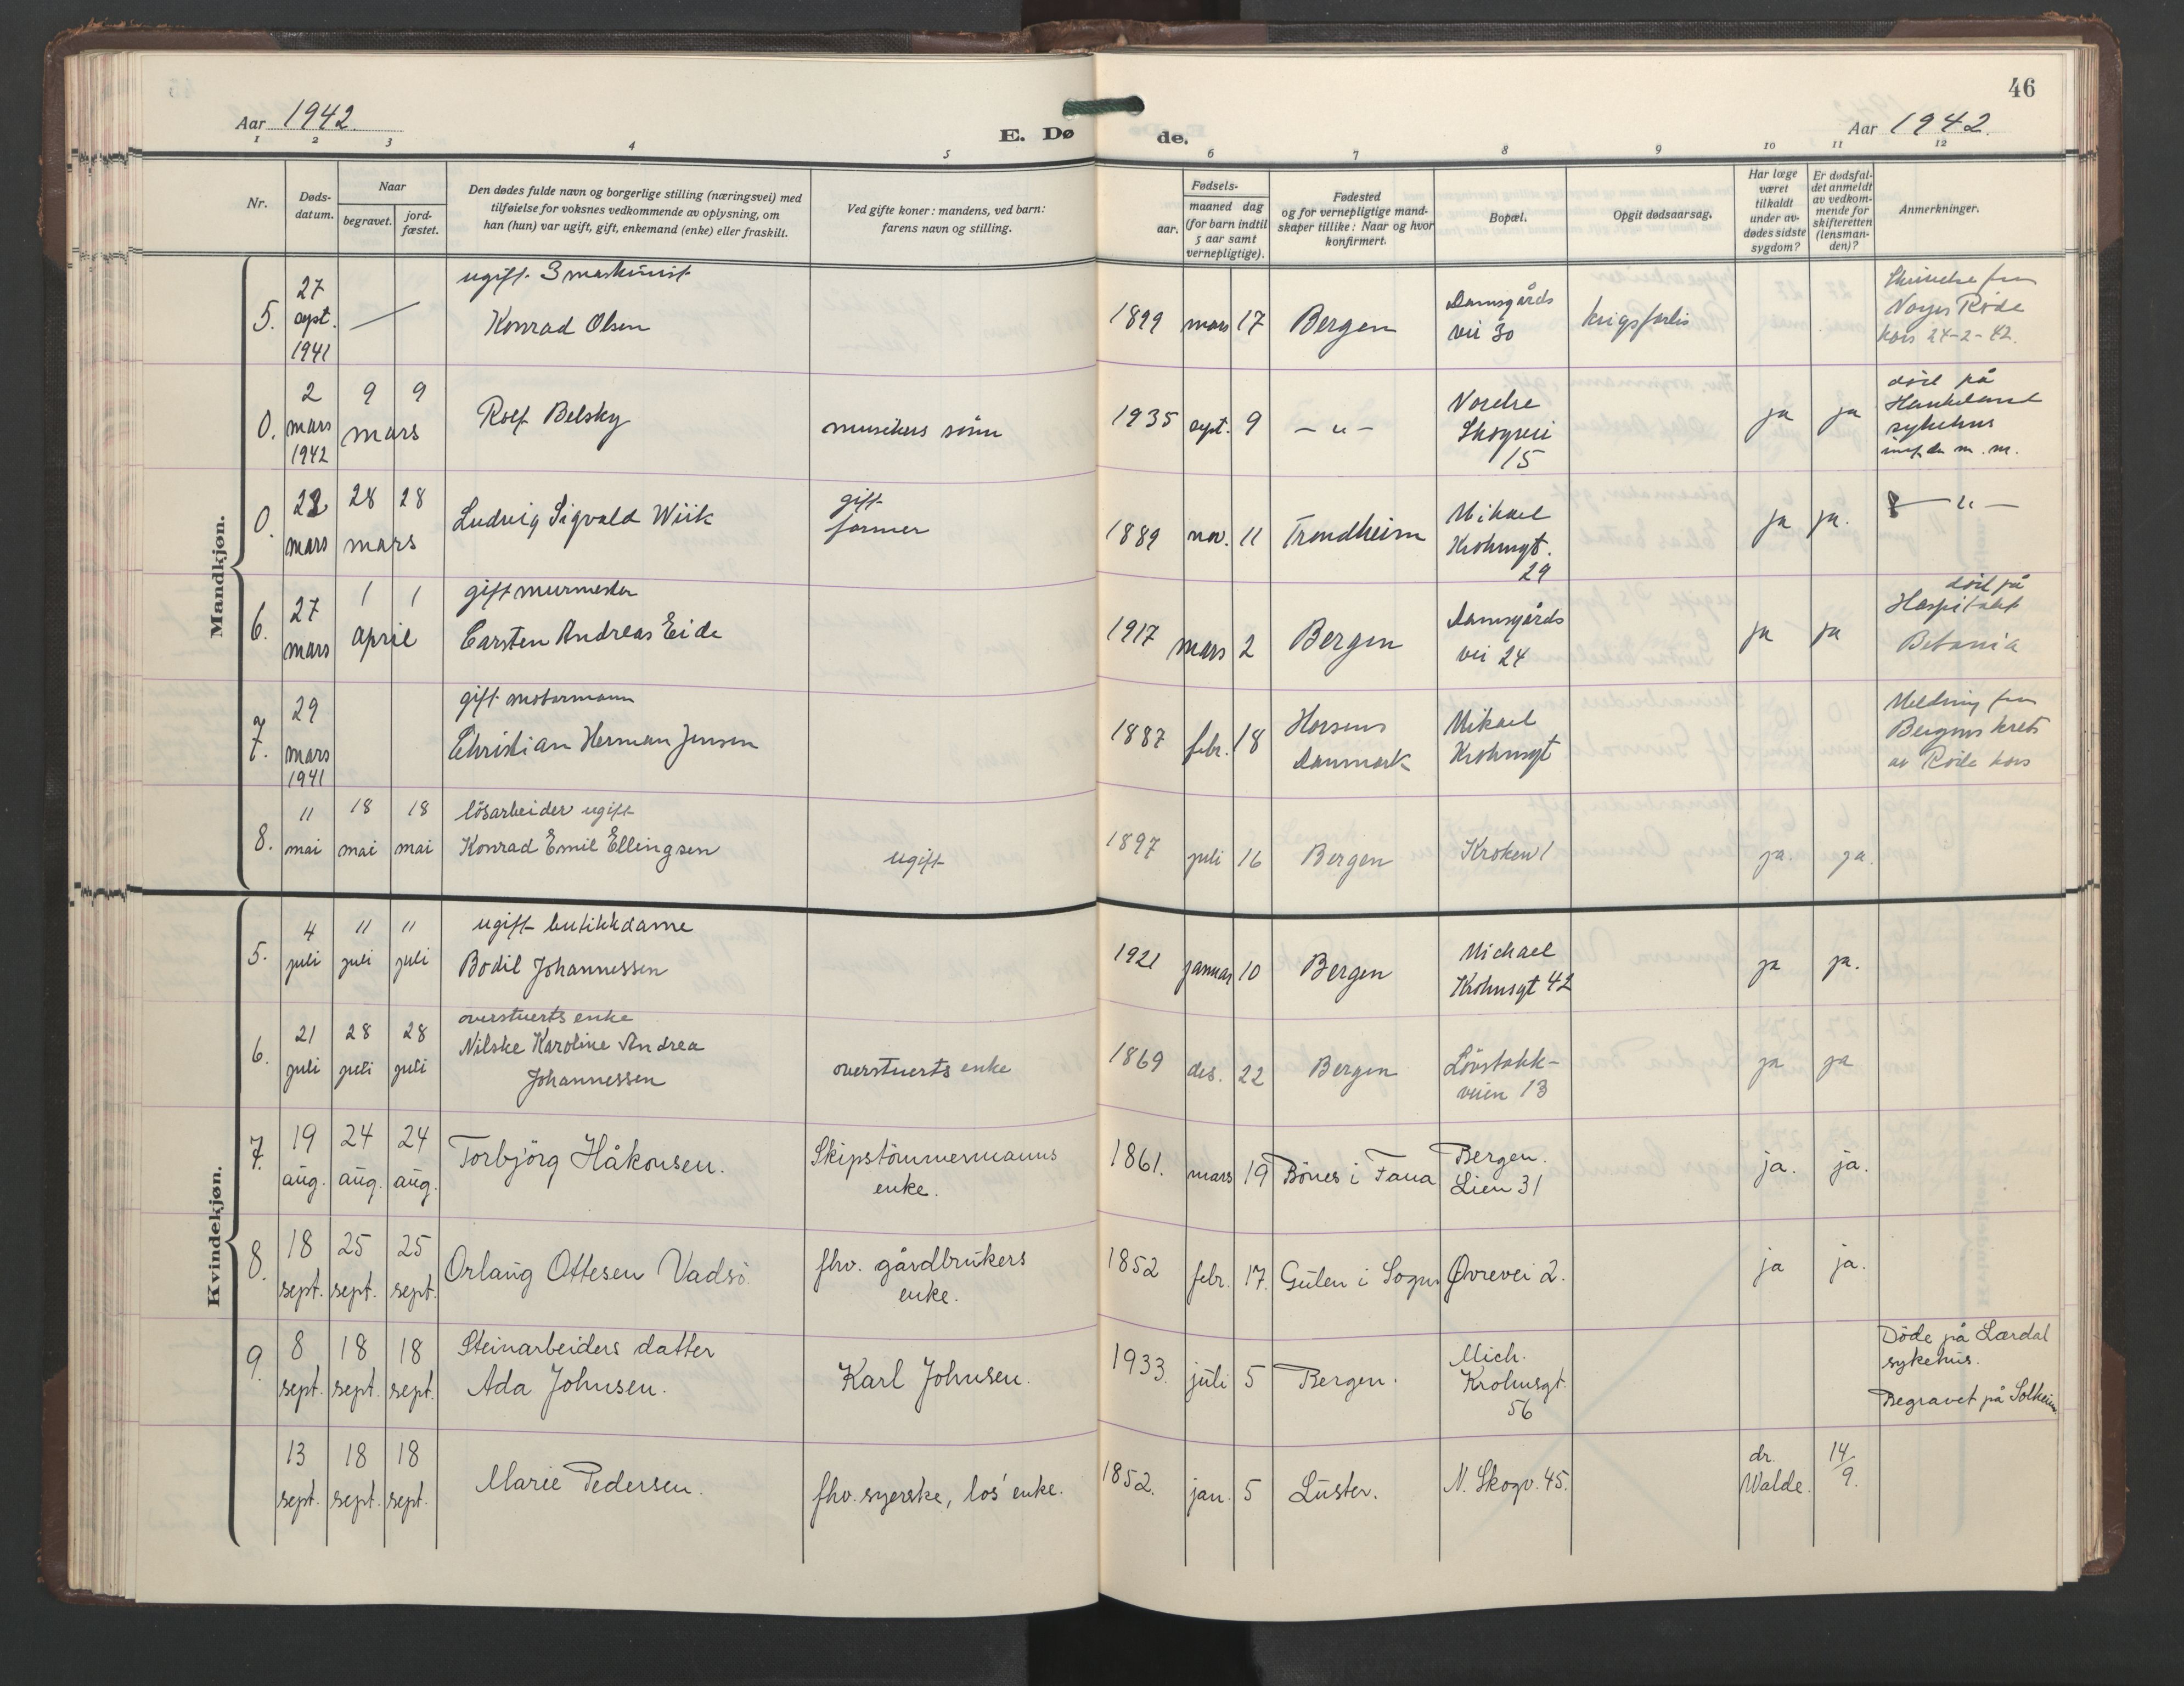 46
Aar 1942.
E. Dø
de.
Aar 1942.
1 2 3 4 5 6 7 8 9 10 11 12
Nr.
Døds-
datum.
Naar
begravet.
jord-
fæstet.
Den dødes fulde navn og borgerlige stilling (næringsvei) med
tilføielse for voksnes vedkommende av oplysning, om
han (hun) var ugift, gift, enkemand (enke) eller fraskilt.
Ved gifte koner: mandens, ved barn:
farens navn og stilling.
Fødsels-
aar.
maaned dag
(for barn indtil
5 aar samt
vernepligtige).
Fødested
og for vernepligtige mand-
skaper tillike: Naar og hvor
konfirmert.
Bopæl.
Opgit dødsaarsag.
Har læge
været
tilkaldt
under av-
dødes sidste
sygdom?
Er dødsfal-
det anmeldt
av vedkom-
mende for
skifteretten
(lensman-
den)?
Anmerkninger.
Mandkjøn.
5.
27
sept.
1941
ugift 3 maskinist
Konrad Olsen
1899 mars 17 Bergen
Damsgårds
vei 30
krigsforlis
Skrivelse fra
Norges Røde
kors 24-2-42.
0.
2
mars
1942
9 9
mars
Rolf Belsky
musikers sönn
1935 sept. 9 - " -
Nordre
Skogvei
15
ja ja
död på
Haukeland
sykehus
m. m.
0.
22
mars
28 28
mars
Ludvig Sigvald Wiik
gift
former
1889 nov. 11 Trondheim
Mikael
Krohnsgt.
29
ja ja.
- " -
6.
27
mars
1 1
april
gift murmester
Carsten Andreas Eide
1917 mars 2 Bergen
Damsgårds
vei 24
ja ja
död på
Hospitalet
Betania
7.
29
mars
1941
gift motormann
Christian Herman Jensen
1887 febr. 18
Horsens
Danmark
Mikael
Krohnsgt
Melding fra
Bergens krets
av Röde kors
8.
11 18 18
mai mai mai
lösarbeider ugift
Konrad Emil Ellingsen
ugift
1897 juli 16 Bergen Kroken 1 ja. ja.
Kvindekjøn.
5.
4 11 11
juli juli juli
ugift butikkdame
Bodil Johannessen
1921 januar 10 Bergen
Michael
Krohnsgt 42
ja ja.
6.
21 28 28
juli juli juli
overstuerts enke
Nilske Karoline Andrea
Johannessen
overstuerts enke
1869 des. 22 Bergen
Lövstakk-
veien 13
ja ja
7.
19 24 24
aug. aug. aug.
Torbjörg Håkonsen.
Skipstömmermanns
enke.
1861. mars 19 Bönes i Fana
Bergen.
Lien 31
ja. ja.
8.
18 25 25
sept. sept. sept.
Orlaug Ottesen Vadsö
fhv. gårdbrukers
enke.
1852 febr. 17. Gulen i Sogn Øvrevei 2. ja ja.
9.
8 18 18
sept. sept. sept.
Steinarbeiders datter
Ada Johnsen.
Karl Johnsen.
1933. juli 5 Bergen.
Mich.
Krohnsgt.
56
Döde på Lærdal
sykehus.
Begravet på Solheim
13 18 18
sept. sept. sept.
Marie Pedersen.
fhv. syerske, los' enke.
1852. jan. 5 Luster. N. Skogv. 45.
dr.
Walde.
14/9.